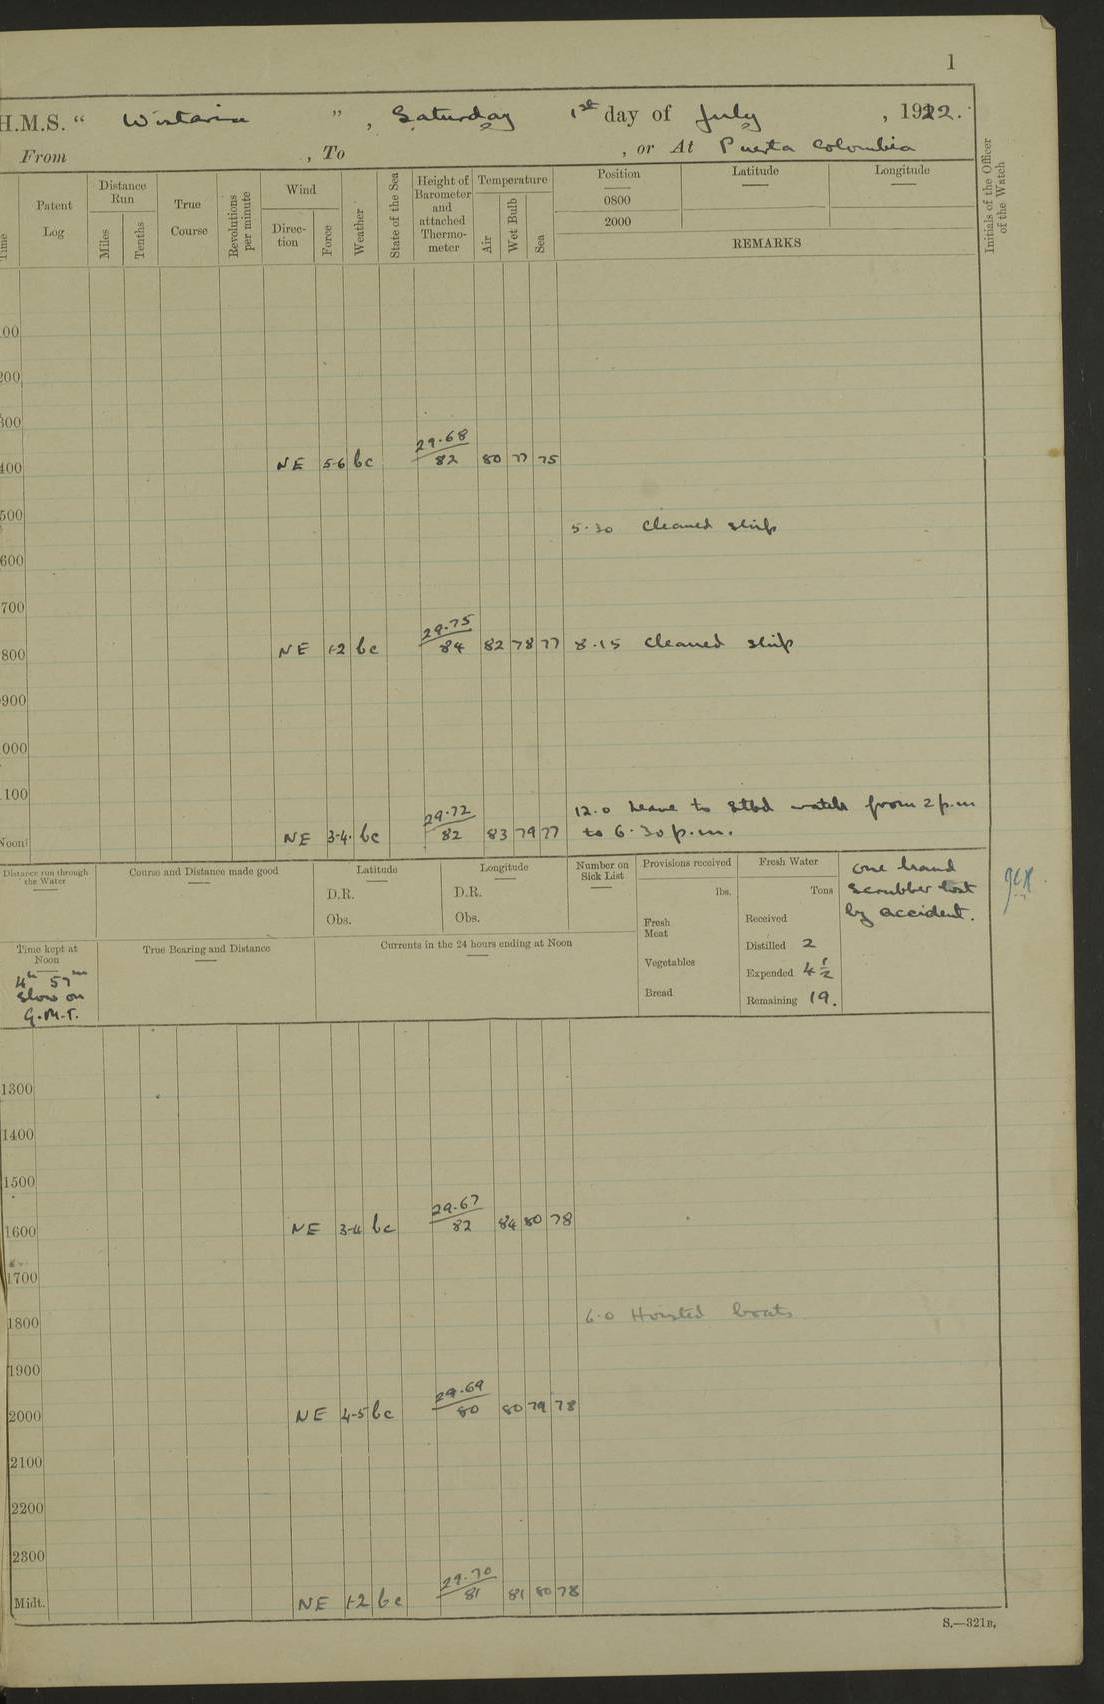 1
H.M.S. “ Wistaria ” , Saturday 1st day of July , 1922.
From , To , or At Puerta Colombia
Time
Patent Log
Distance Run
Miles
Tenths
True Course
Revolutions per minute
Wind
Direc-tion
Force
Weather
State of the Sea
Height of Barometer and attached Thermo-meter
Temperature
Air
Wet Bulb
Sea
Position
0800
2000
Latitude
Longitude
REMARKS
Initials of the Officer of the Watch
100
200
300
29.68
400 NE 5-6 bc 82 80 77 75
500 5.30 Cleaned ship
600
700
29.75
800 NE 1-2 bc 84 82 78 77 8.15 Cleaned ship
900
000
100
29.72 12.0 Leave to stbd watch from 2 p.m
Noon NE 3-4. bc 82 83 79 77 to 6.30 p.m.
Distance run through the Water
Course and Distance made good
Latitude
D.R.
Obs.
Longitude
D.R.
Obs.
Number on Sick List
Provisions received
lbs.
Fresh Meat
Vegetables
Bread
Fresh Water
Tons
Received
Distilled 2
Expended 4 1/2
Remaining 19.
one hand
scrubber lost
by accident.
Time kept at Noon
4h 57m
slow on
G.M.T.
True Bearing and Distance
Currents in the 24 hours ending at Noon
1300
1400
1500
29.67
1600 NE 3-4 bc 82 84 80 78
1700
1800 6.0 Hoisted boats
1900
29.69
2000 NE 4-5 bc 80 80 79 78
2100
2200
2300
29.70
Midt. NE 1-2 bc 81 81 80 78
S.—321B.